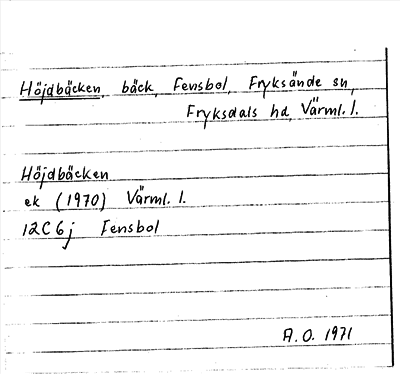 Höjdbäcken, bäck, Fensbol, Fryksände sn,
Fryksdals hd, Värml. l.
Höjdbäcken
ek (1970) Värml. l.
12C6j Fensbol
A.O. 1971